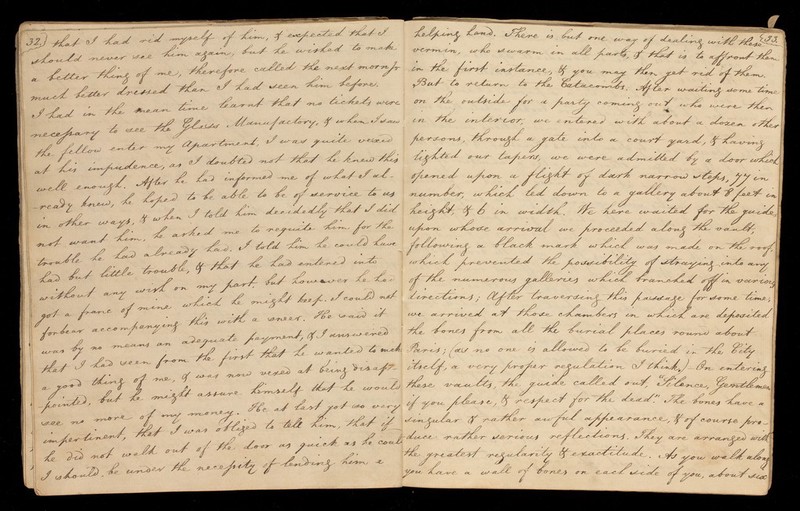 32.) that I had rid myself of him, & expected that I
should never see him again, but he wished to make
a better thing of me, therefore called the next morng
much better dressed than I had seen him before.
I had in the mean time learnt that no tickets were
necessary to see the Glass Manufactory, & when I saw
the fellow enter my apartment, I was quite vexed
at his impudence, as I doubted not that he knew this
well enough. After he had informed me of what I al-
-ready knew, he hoped to be able to be of service to us
in other ways, & when I told him decidedly that I did
not want him, he asked me to requite him for the
trouble he had already had. I told him he could have
had but little trouble, & that he had entered into it
without any wish on my part, but however he had
got a franc of mine which he might keep. I could not
forbear accompanying this with a sneer. He said it
was by no means an adequate payment, & I answered
that I had seen from the first that he wanted to make
a good thing of me, & was now vexed at being disap-
-pointed, but he might assure himself that he would
see no more of my money. He at last got so very
impertinent, that I was obliged to tell him, that if
he did not walk out of the door as quick as he could
I should be under the necessity of lending him a
33.
helping hand. There is but one way of dealing with these
vermin, who swarm in all parts, & that is to affront them
in the first instance, & you may then get rid of them.
But to return to the Catacombs. After waiting some time
on the outside for a party coming out who were then
in the interior, we entered with about a dozen other
persons, through a gate into a court yard, & having
lighted our tapers, we were admitted by a door which
opened upon a flight of dark narrow steps, 77 in
number, which led down to a gallery about 8 feet in
height, & 6 in width. We here waited for the guide,
upon whose arrival we proceeded along the vault,
following a black mark which was made on the roof,
which prevented the possibility of straying into any
of the numerous galleries which branched off in various
directions; after traversing this passage for some time,
we arrived at those chambers in which are deposited
the bones from all the burial places round about
Paris; (as no one is allowed to be buried in the City
itself, a very proper regulation I think.) On entering
these vaults, the guide called out "Silence, Gentlemen
if you please, & respect for the dead". The bones have a
singular & rather awful appearance, & of course pro-
duce rather serious reflections. They are arranged with
the greatest regularity & exactitude. As you walk along
you have a wall of bones on each side of you, about six